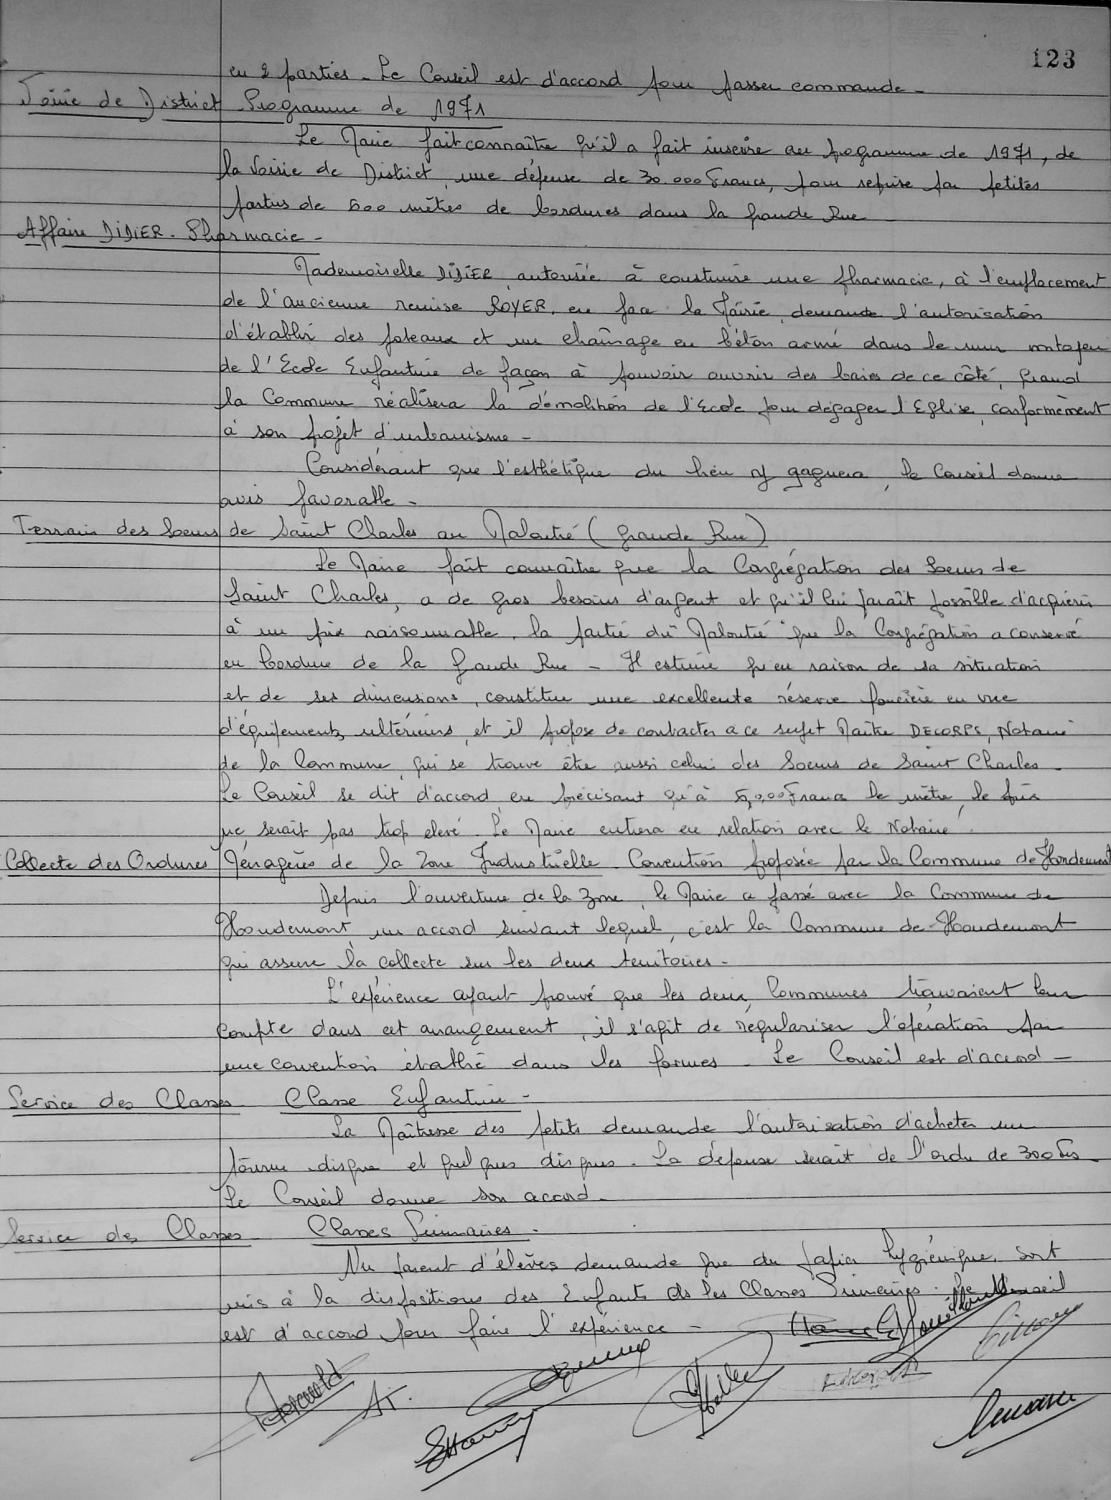 123
en 2 parties - Le Conseil est d'accord pour passer commande -
Voirie de District Programme de 1971
Le Maire fait connaître qu'il a fait inscrire au programme de 1971, de
la Voirie de District, une dépense de 30.000 Francs, pour reprise par petites
parties de 600 mètres de bordures dans la grande Rue
Affaire DIDIER - Pharmacie -
Mademoiselle DIDIER, autorisée à construire une pharmacie, à l'emplacement
de l'ancienne remise ROYER, en face la Mairie, demande l'autorisation
d'établir des poteaux et un chaînage en béton armé dans le mur mitoyen
de l'Ecole Enfantine de façon à pouvoir ouvrir des baies de ce côté, quand
la Commune réalisera la démolition de l'Ecole pour dégager l'Eglise, conformément
à son projet d'urbanisme -
Considérant que l'esthétique du lieu y gagnera, le Conseil donne
avis favorable -
Terrain des Soeurs de Saint Charles au Maloutié (grande Rue)
Le Maire fait connaître que la Congrégation des Soeurs de
Saint Charles, a de gros besoins d'argent et qu'il lui paraît possible d'acquérir
à un prix raisonnable, la partie du Maloutié que la Congrégation a conservé
en bordure de la Grande Rue - Il estime qu'en raison de sa situation
et de ses dimensions, constitue une excellente réserve foncière en vue
d'équipements ultérieurs, et il propose de contacter a ce sujet Maître DECORPS, Notaire
de la Commune, qui se trouve être aussi celui des Soeurs de Saint Charles -
Le Conseil se dit d'accord, en précisant qu'à Francs le mètre, le prix
ne serait pas trop elevé - Le Maire entrera en relation avec le Notaire
Collecte des Ordures Ménagères de la Zone Industrielle - Convention proposée par la Commune de Houdemont
Depuis l'ouverture de la Zone, le Maire a passé avec la Commune de
Houdemont un accord suivant lequel, c'est la Commune de Houdemont
qui assure la collecte sur les deux territoires -
L'expérience ayant prouvé que les deux Communes trouvaient leur
compte dans cet arrangement, il s'agit de régulariser l'opération par
une convention établie dans les formes - Le Conseil est d'accord -
Service des Classes Classe Enfantine -
La Maîtresse des petits demande l'autorisation d'acheter un
tourne disque et quelques disques - La dépense serait de l'ordre de 300 Frs -
Le Conseil donne son accord -
Service des Classes Classes Primaires -
Un parent d'élèves demande que du papier hygiénique, soit
mis à la disposition des Enfants ds les Classes Primaires - Le Conseil
est d'accord pour faire l'expérience -